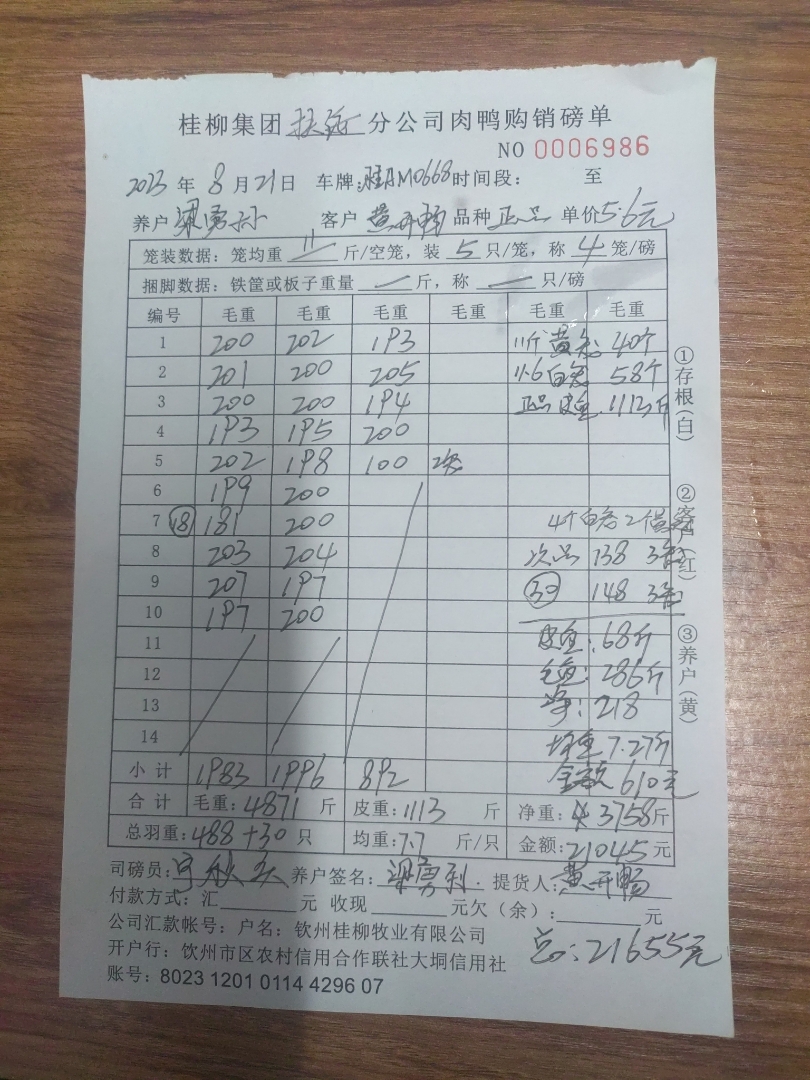 桂柳集团扶绥分公司肉鸭购销磅单
NO 0006986
2023 年 8 月 21 日 车牌:桂AM0668 时间段: 至
养户 梁勇 客户 黄开畅 品种 正品 单价 5.6元
笼装数据:笼均重 11 斤/空笼,装 5 只/笼,称 4 笼/磅
捆脚数据:铁筐或板子重量 — 斤,称 — 只/磅
编号 毛重 毛重 毛重 毛重 毛重 毛重
1 200 202 193 11斤黄笼 40个
2 201 200 205 11.6白笼 58个
3 200 200 194 正品皮重 1113斤
4 193 195 200
5 202 198 100 2笼
6 199 200
7 ⑱ 181 200 4个白笼 2个黄笼
8 203 204 次品 138 3笼
9 207 197 ㉚ 148 3笼
10 197 200
11 皮重:68斤
12 毛重:286斤
13 净:218
14 均重 7.27斤
小计 1983 1996 892 金额 610元
合计 毛重:4871 斤 皮重:1113 斤 净重:3758斤
总羽重:488+30 只 均重:7.7 斤/只 金额:21045 元
司磅员: 养户签名:梁勇 提货人:黄开畅
付款方式:汇 元 收现 元欠(余): 元
公司汇款帐号:户名:钦州桂柳牧业有限公司
总:21655元
开户行:钦州市区农村信用合作联社大垌信用社
账号:8023 1201 0114 4296 07
①存根(白)
②客户(红)
③养户(黄)